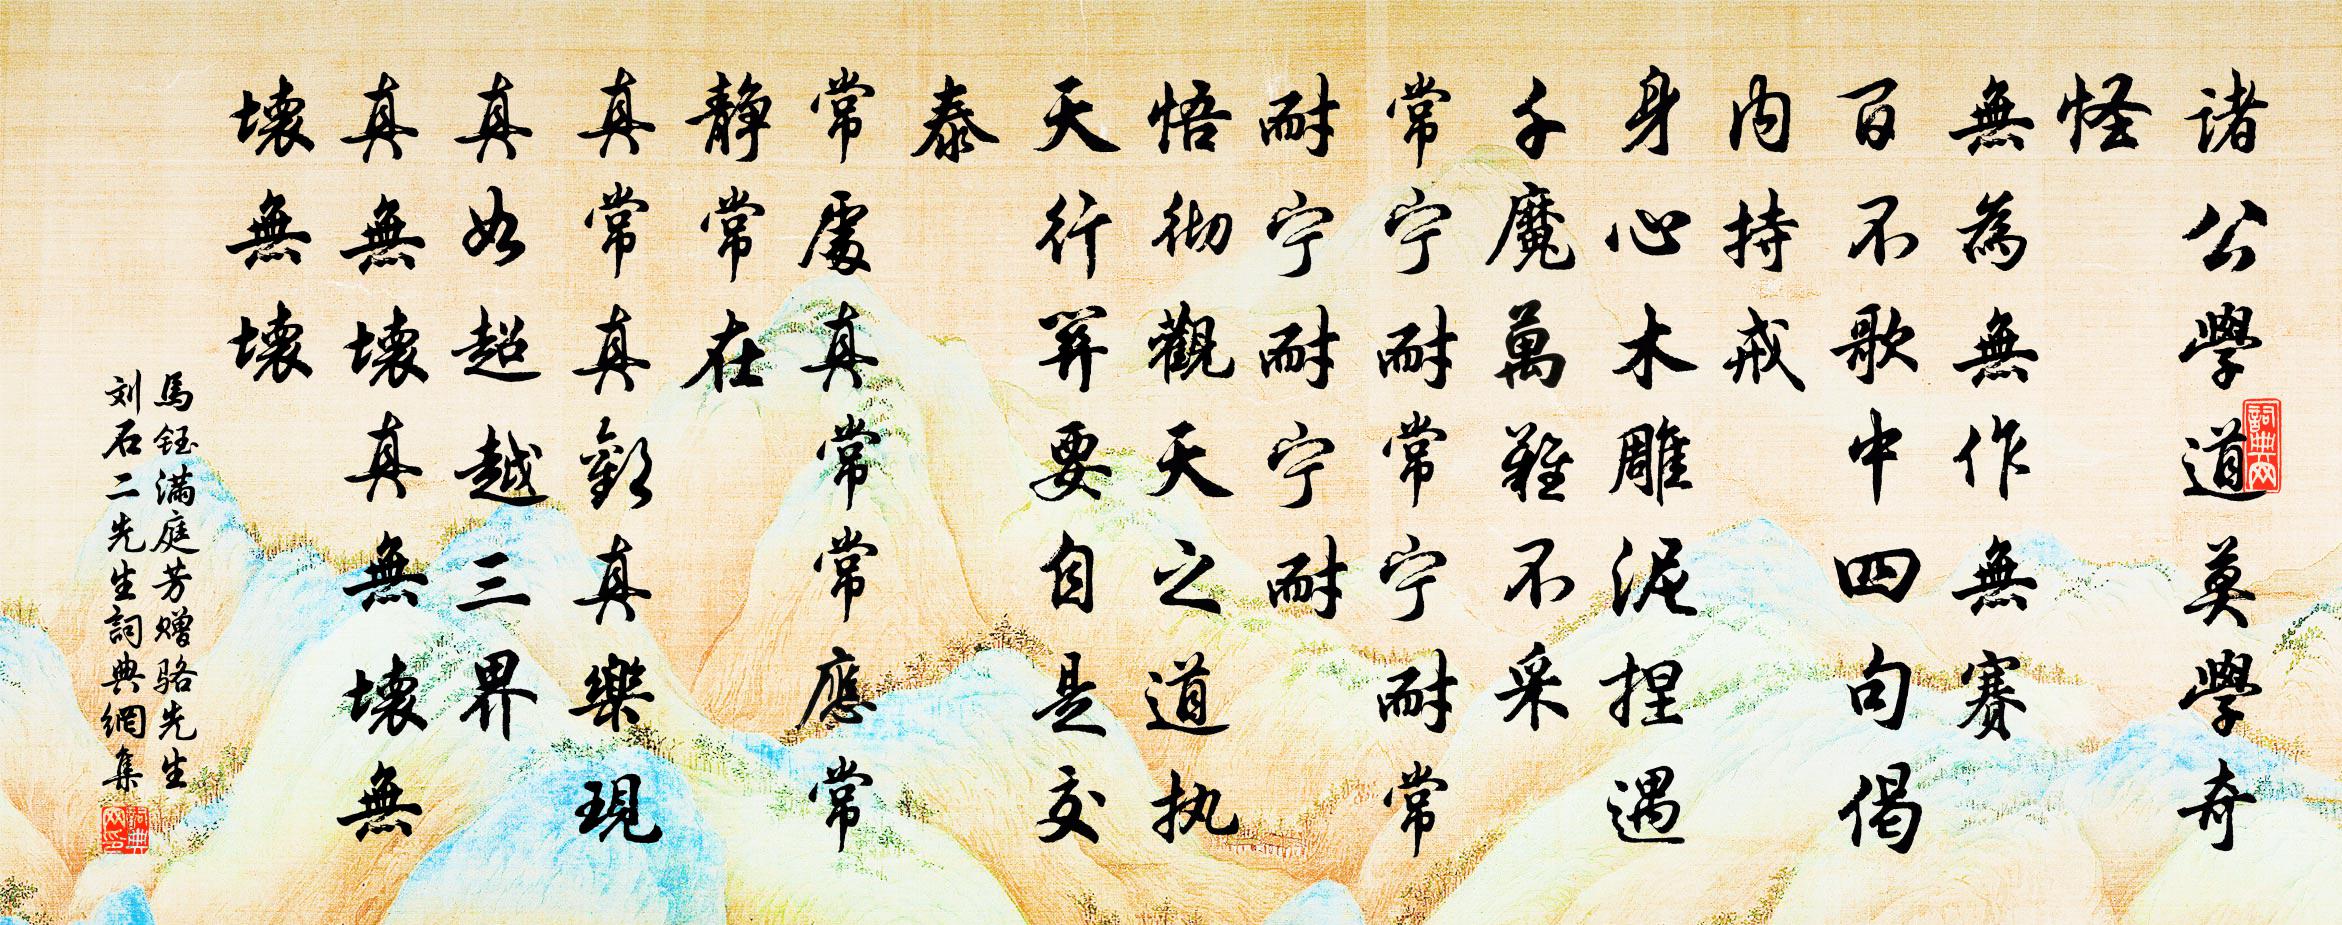 诸公學道莫學奇
怪
無為無作無賽
百不歌中四句偈
内持戒
身心木雕泥捏遇
千魔萬難不采
常宁耐常宁耐常
耐宁耐宁耐
悟彻觀天之道执
天行筭要自是交
泰
常處真常常應常
静常在
真常真歡真樂現
真如超越三界
真無壊真無壊無
壊無壊
馬鈺满庭芳赠骆先生
刘石二先生詞典網集
詞典网
詞典网印